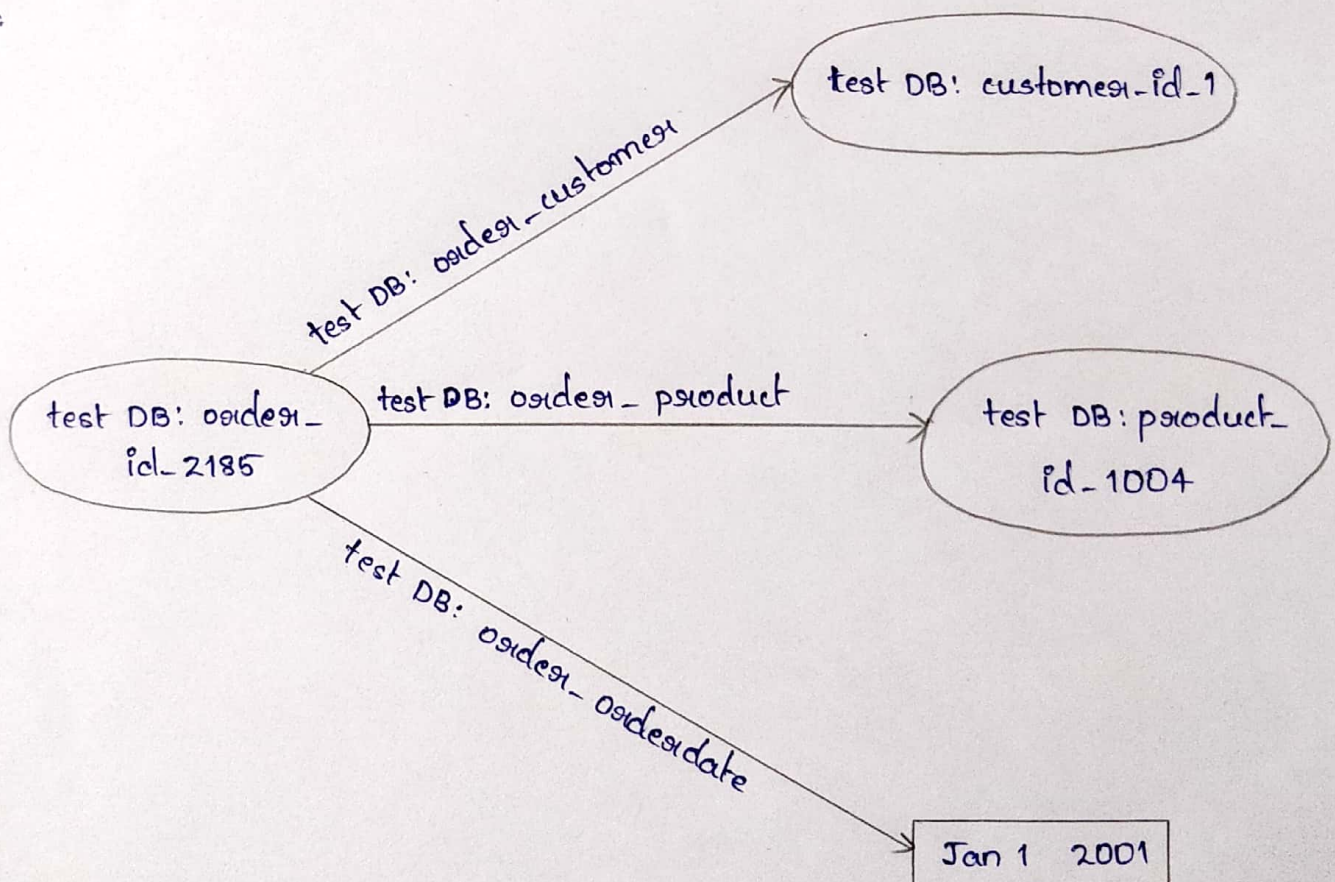 test DB: customer_id_1
test DB: order_customer
test DB: order_product
test DB: order_
id_2185
test DB: product_
id_1004
test DB: order_orderdate
Jan 1 2001